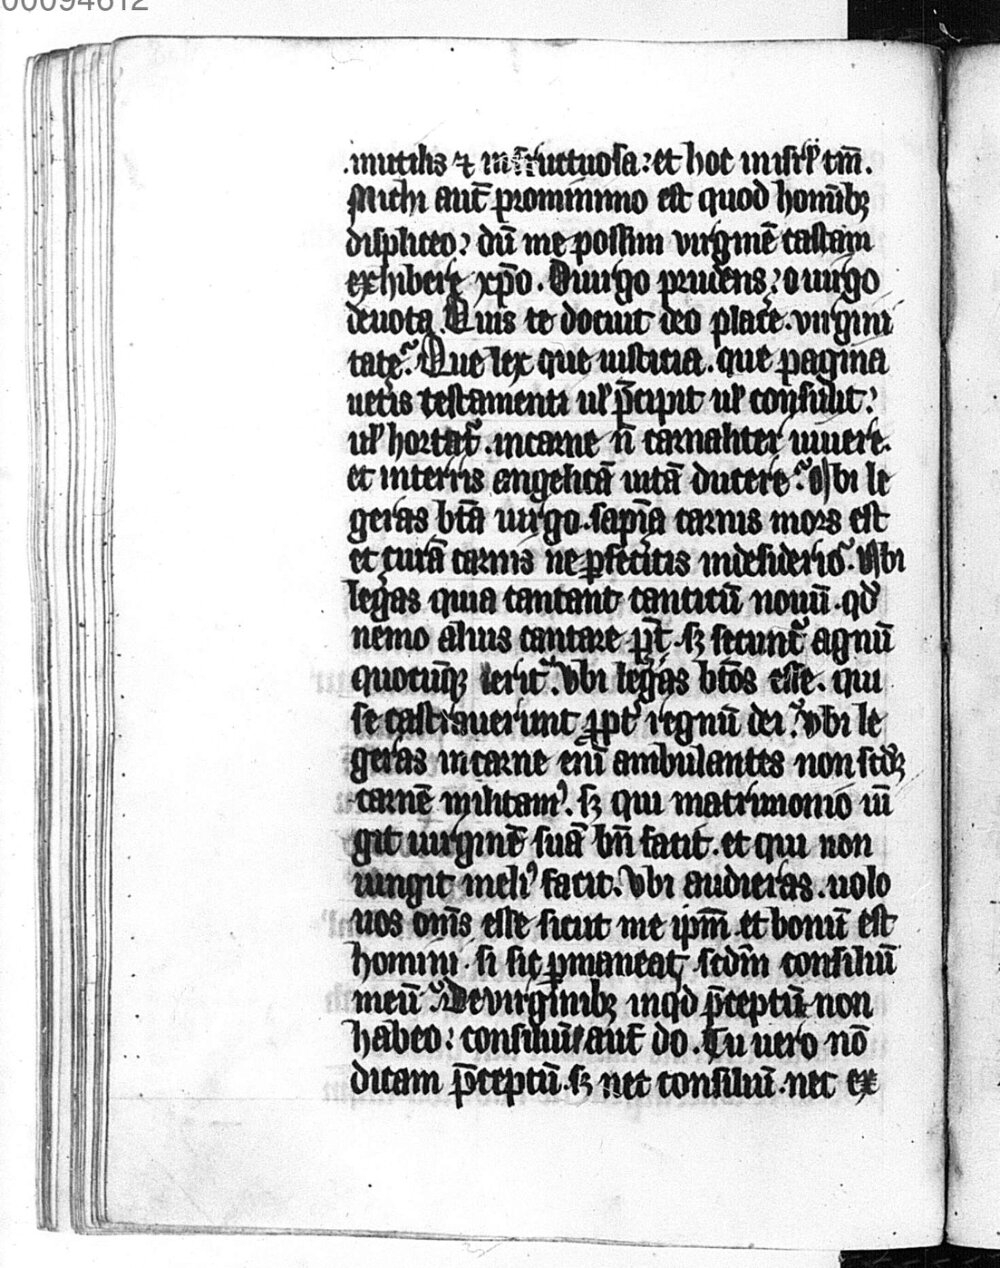 00094612
.inutilis ⁊ infructuosa: et hoc in isrl̕ tm̄.
Michi aut̄ pro minimo est quod homīb;
displiceo? dū me possim virginē castam
exhibere xp̄o. O uirgo prudens? o uirgo
deuota Quis te docuit deo placē. virgini
tatē? Que lex que iusticia. que pagina
uetīs testamenti ul̕ p̄cipit ul̕ consulit?
ul̕ hortat᷑. in carne n̄ carnaliter uiuere.
et in terris angelicā uitā ducere? Vbi le
geras bt̄a uirgo. sapīa carnis mors est
et curā carnis ne ꝑfecitis in desiderio? Vbi
legas quia cantant canticū nouū. qd̕
nemo alius cantare pt̄. s; secunt᷑ agnū
quocūq; ierit? Vbi legas bt̄os esse. qui
se castrauerunt ꝓpt̕ regnū dei? Vbi le
geras in carne enī ambulantes non scd̕;
carnē militam᷒. s; qui matrimonio iū
git uirginē suā bn̄ facit. et qui non
iungit meli᷒ facit. Vbi audieras. uolo
uos om̄s esse sicut me ip̄m. et bonū est
homini. si sic ꝑmaneat, scdm̄ consiliū
meū? De virginib; inqd p̄ceptū non
habeo: consiliū aut̄ do. Tu uero nō
dicam p̄ceptū. s; nec consiliū. nec ex